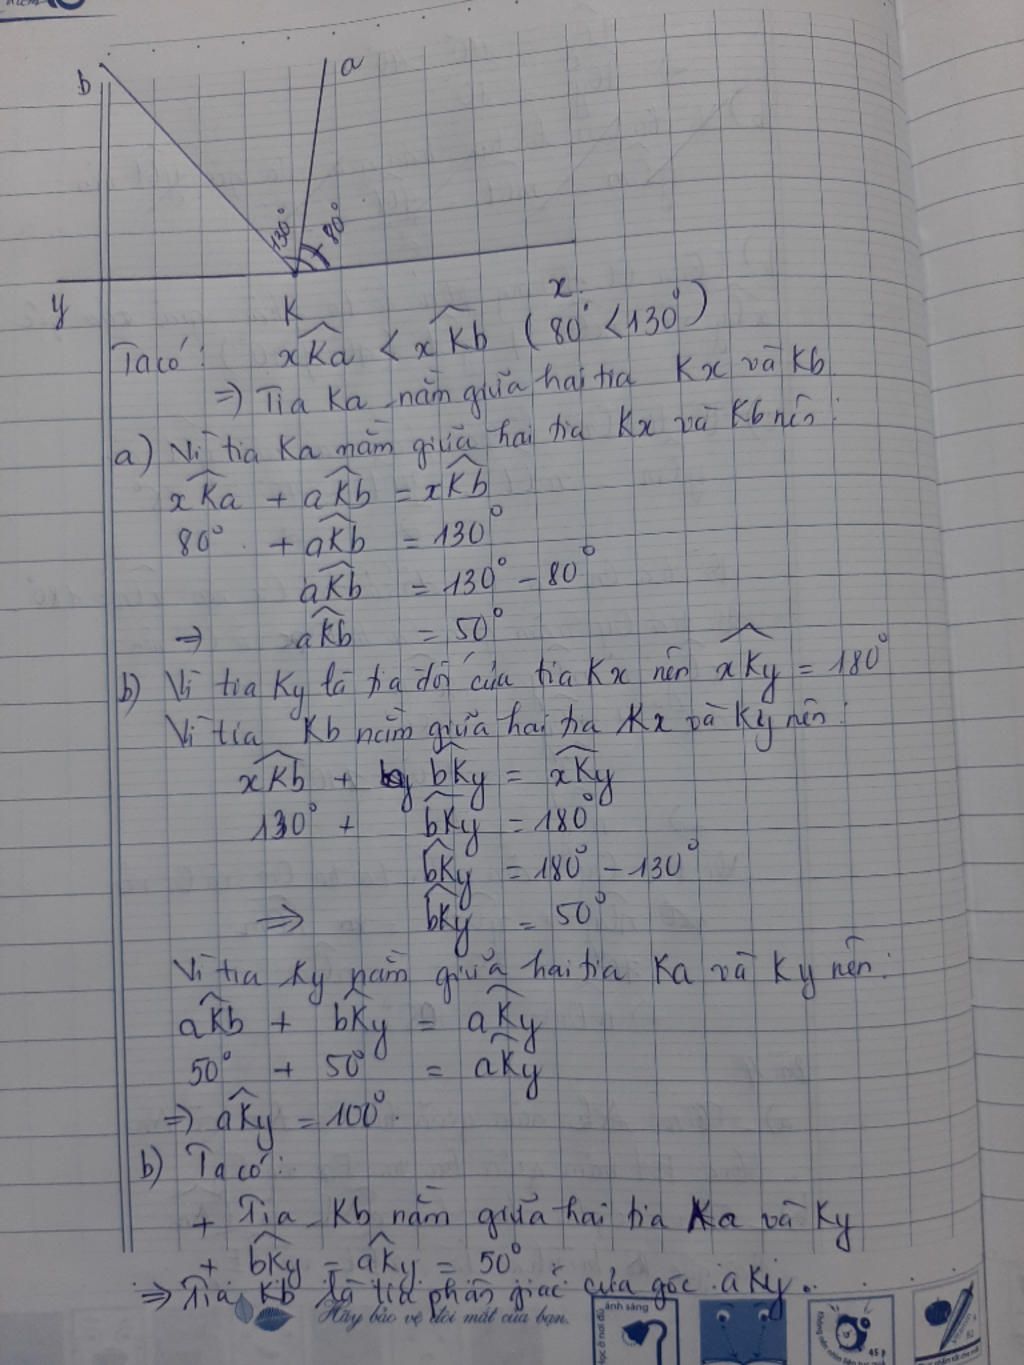 b
a
130°
80°
y
K
x
Ta có: xKa < xKb (80° < 130°)
=> Tia Ka nằm giữa hai tia Kx và Kb
a) Vì tia Ka nằm giữa hai tia Kx và Kb nên:
xKa + aKb = xKb
80° + aKb = 130°
aKb = 130° - 80°
=> aKb = 50°
b) Vì tia Ky là tia đối của tia Kx nên xKy = 180°
Vì tia Kb nằm giữa hai tia Kx và Ky nên:
xKb + bKy = xKy
130° + bKy = 180°
bKy = 180° - 130°
=> bKy = 50°
Vì tia Ky nằm giữa hai tia Ka và Ky nên:
aKb + bKy = aKy
50° + 50° = aKy
=> aKy = 100°.
b) Ta có:
+ Tia Kb nằm giữa hai tia Ka và Ky
+ bKy = aKy = 50°.
=> Tia Kb là tia phân giác của góc aKy.
Hãy bảo vệ đôi mắt của bạn.
ánh sáng
45 p